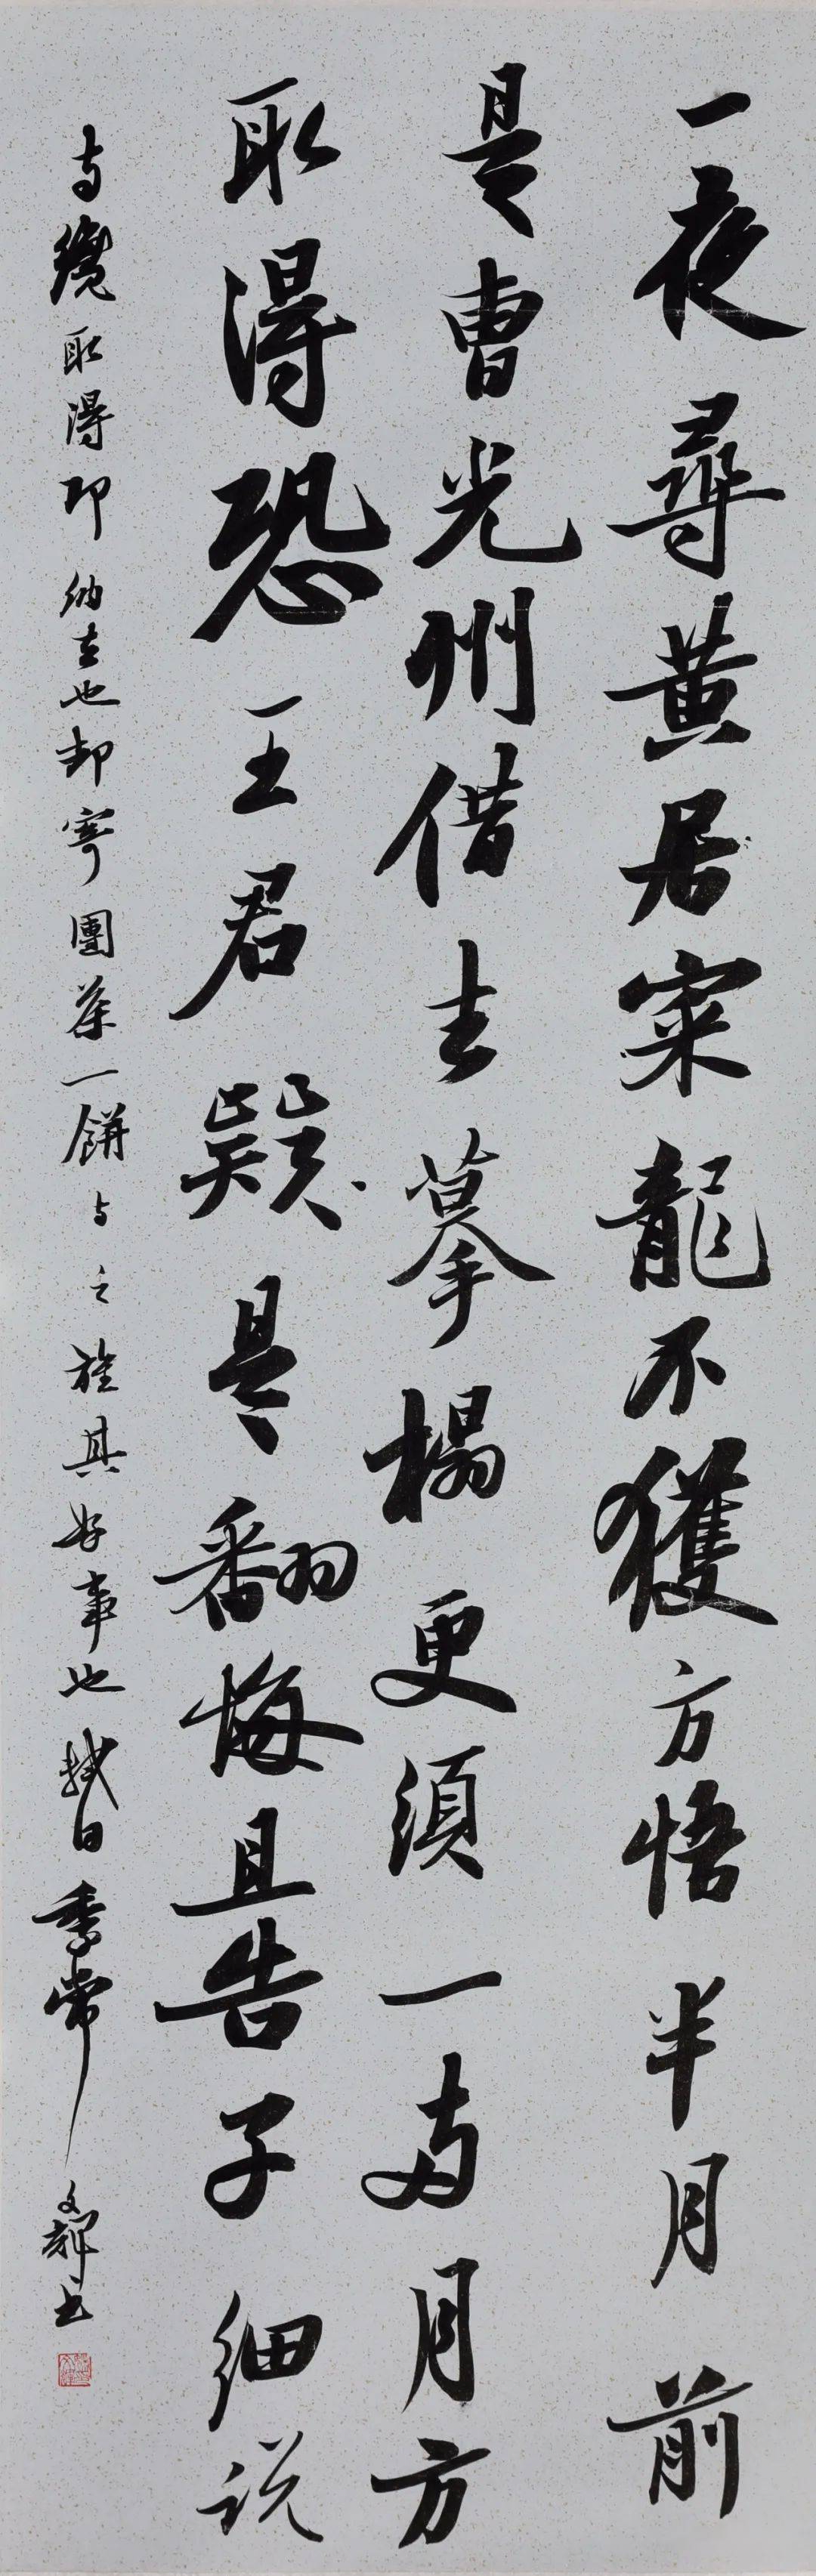 一夜尋黃居寀龍不獲方悟半月前
是曹光州借去摹榻更須一兩月方
取得恐王君疑是翻悔且告子細說
與纔取得即納去也却寄團茶一餅與之旌其好事也軾白季常 文輝書